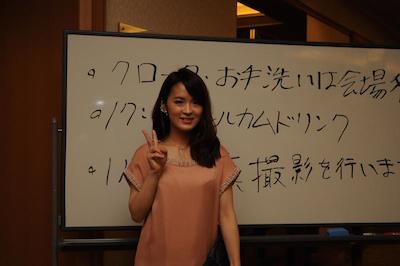 ・クローク・お手洗いは会場
・ウ ルカムドリンク
・ 撮影を行いま